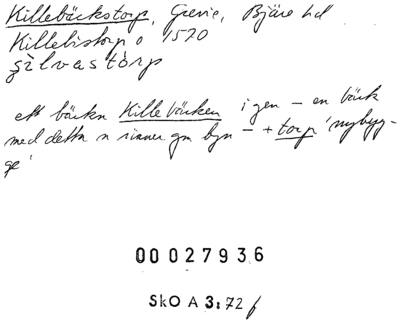 Killebäckstorp, Grevie, Bjäre hd
Killebistorp o 1570
ett bäckn Killebäcken i gen – en bäck
med detta n rinner gm byn – + torp 'nybyg-
ge'
00 027936
SkO A 3:72 f